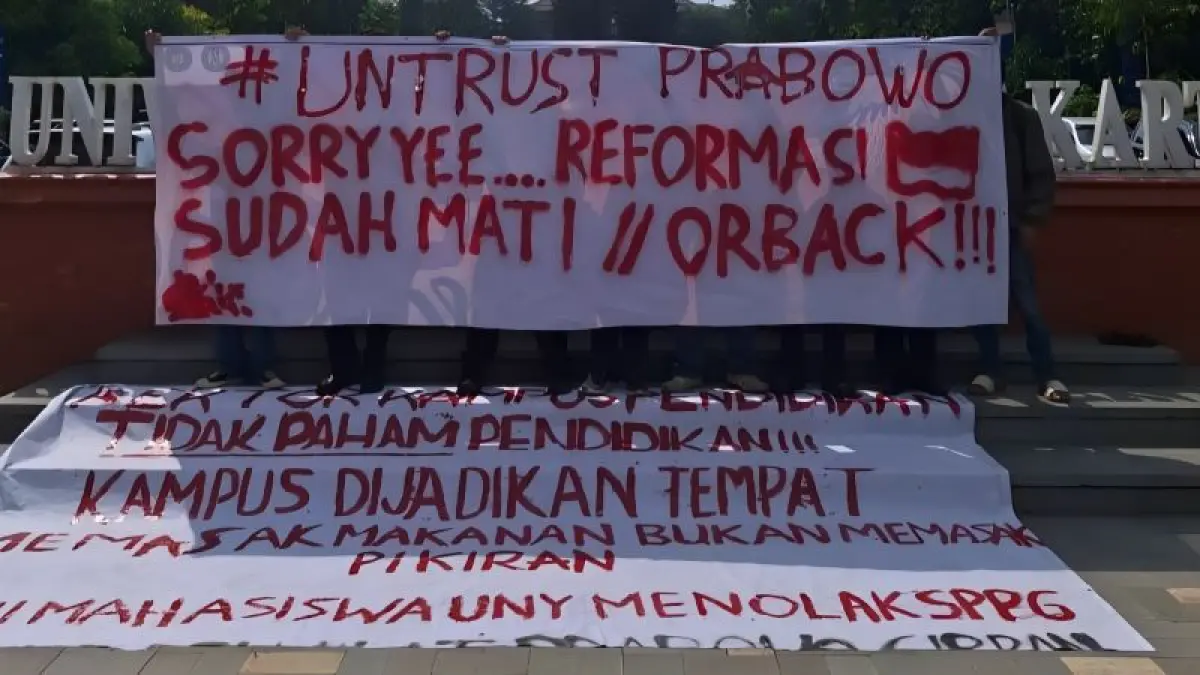 UNI KART
# UNTRUST PRABOWO
SORRY YEE.... REFORMASI
SUDAH MATI // ORBACK!!!
KAMPUS PENDIDIKAN
TIDAK PAHAM PENDIDIKAN!!!
KAMPUS DIJADIKAN TEMPAT
MEMASAK MAKANAN BUKAN MEMASAK
PIKIRAN
MAHASISWA UNY MENOLAK SPPG
PRABOWO